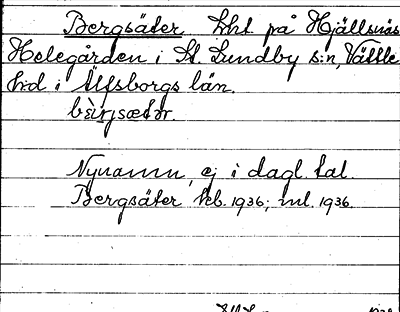 Bergsäter, lht på Hjällsnäs
Helegården i St. Lundby s:n, Vättle
h:d i Älfsborgs län.
Nynamn, ej i dagl. tal.
Bergsäter kb. 1936; ml. 1936.